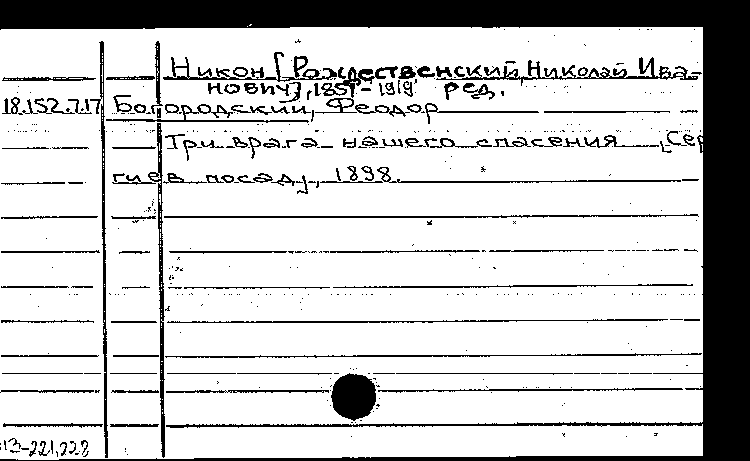 Никон [Рождественский, Николай Ива-
нович], 1851-1919 ред.
18.152.7.17 Богородский, Феодор
Три врага нашего спасения [Сер
гиев посад], 1898.
13-221,228